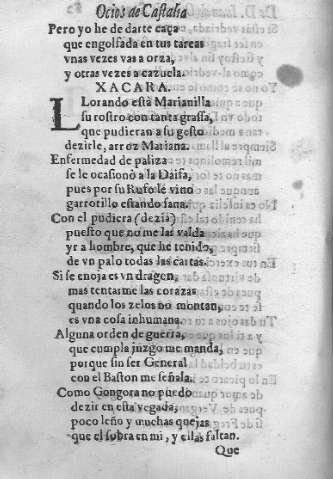 Ocios de Castalia
Pero yo he de darte caça
que engolfada en tus tareas
vnas vezes vas a orza,
y otras vezes a cazuela.
XACARA.
Llorando està Marianilla
su rostro con tanta grassa,
que pudieran a su gesto
dezirle, arroz Mariana.
Enfermedad de paliza
se le ocasionò a la Daifa,
pues por su Rufo le vino
garrotillo estando sana.
Con el pudiera (dezia)
puesto que no me las valda
yr a hombre, que he tenido,
de vn palo todas las cartas.
Si se enoja es vn dragon,
mas tentarme las corazas
quando los zelos no montan,
es vna cosa inhumana.
Alguna orden de guerra,
que cumpla juzgo me manda,
porque sin ser General
con el Baston me señala.
Como Gongora no puedo
dezir en esta vegada,
poco leño y muchas quejas
que el sobra en mi, y ellas faltan.
Que